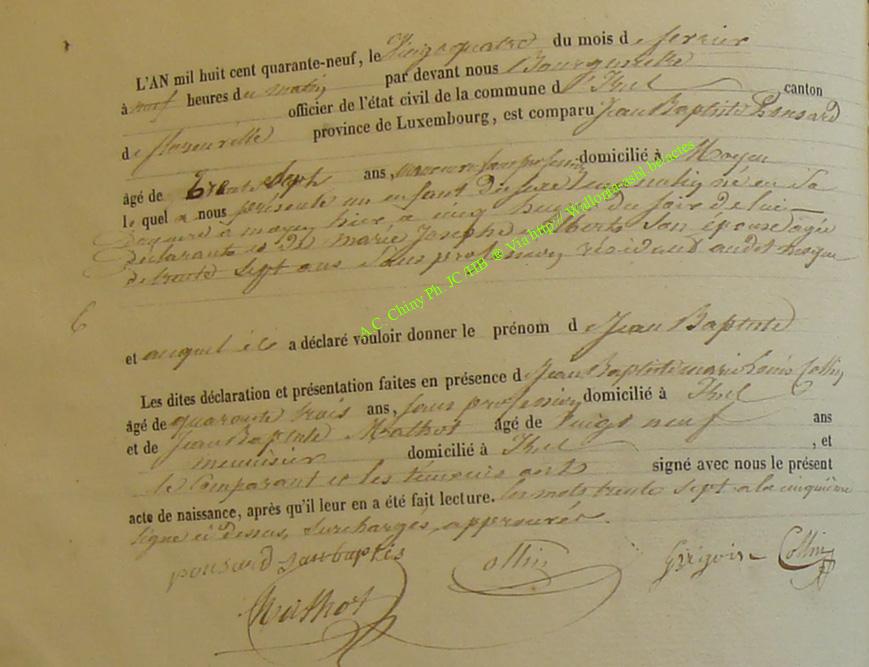 L'AN mil huit cent quarante-neuf, le vingt quatre du mois d e fevrier
à neuf heures du matin par devant nous Bourgmestre
officier de l'état civil de la commune d' Izel canton
de florenville province de Luxembourg, est comparu Jean Baptiste Ponsard
âgé de trente sept ans, sans profession domicilié à Moyen
le quel a nous présenté un enfant du sexe masculin né en sa
à moyen hier, à cinq heures du soir de lui
déclarant et de marie Josephe son épouse agée
de trente sept ans sans profession résidant audit moyen
et auquel il a déclaré vouloir donner le prénom d e Jean Baptiste
Les dites déclaration et présentation faites en présence d e Jean Baptiste marie Louis Collin
âgé de quarante trois ans, sans profession domicilié à Izel
et de Jean Baptiste Mathot âgé de vingt neuf ans
menuisier domicilié à Izel , et
le comparant et les témoins ont signé avec nous le présent
acte de naissance, après qu'il leur en a été fait lecture. les mots trente sept a la cinquième
ligne ci dessus, surchargés, approuvés.
ponsard jean baptis Collin Grégoire Collin
Mathot
6
A.C. Chiny Ph. JC /HB ® Via http// Wallonia-asbl.be/actes